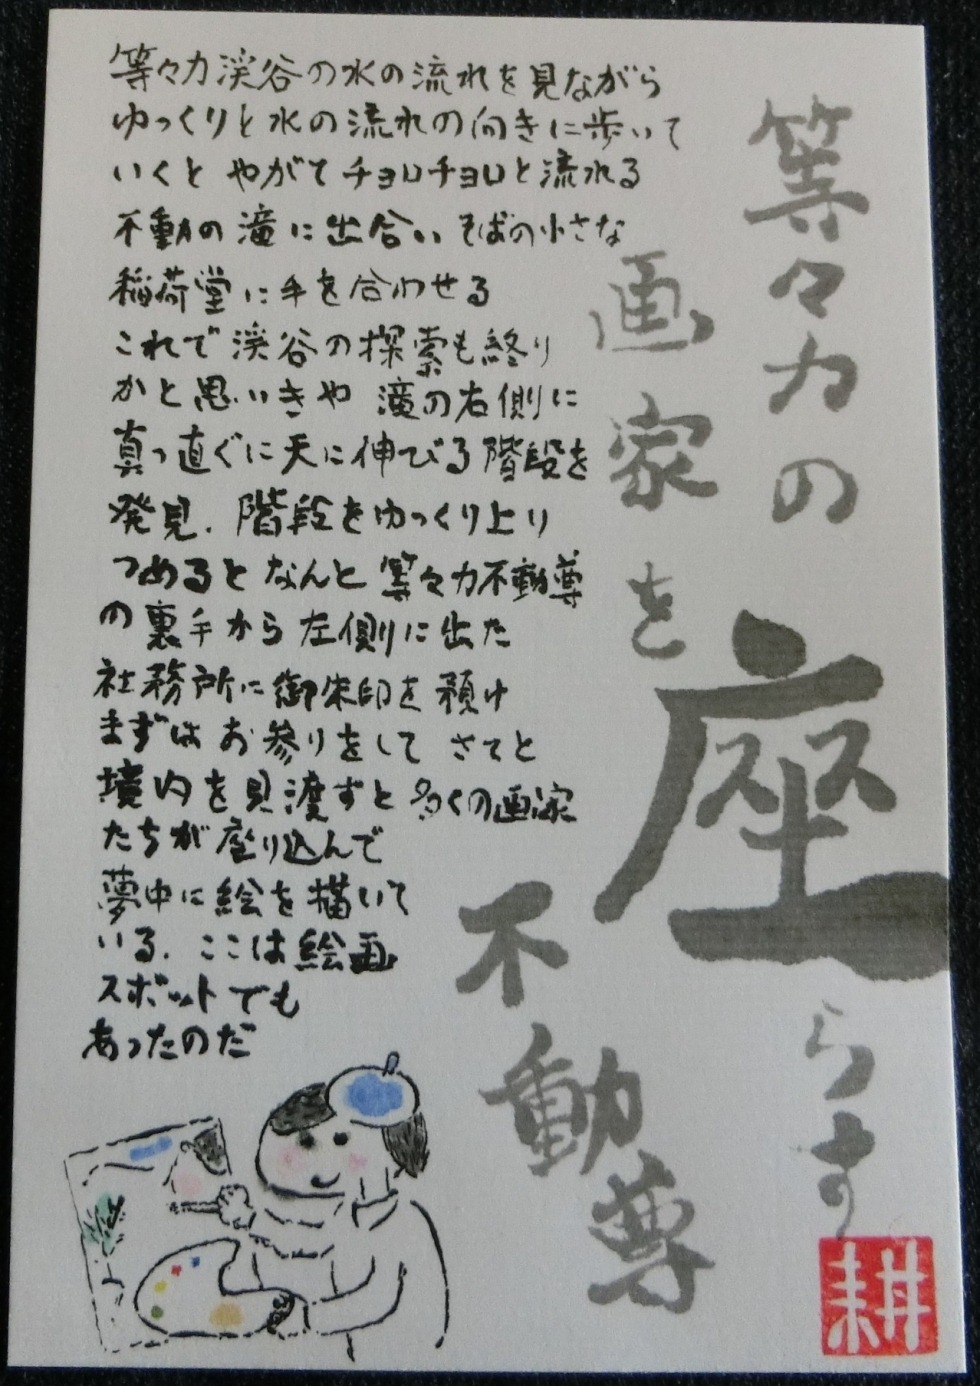 等々力の
画家を
座らす
不動尊
等々力渓谷の水の流れを見ながら
ゆっくりと水の流れの向きに歩いて
いくと やがてチョロチョロと流れる
不動の滝に出合い そばの小さな
稲荷堂に手を合わせる
これで渓谷の探索も終り
かと思いきや 滝の右側に
真っ直ぐに天に伸びる階段を
発見. 階段をゆっくり上り
つめると なんと 等々力不動尊
の裏手から左側に出た
社務所に御朱印を預け
まずはお参りをして さてと
境内を見渡すと 多くの画家
たちが座り込んで
夢中に絵を描いて
いる. ここは絵画
スポットでも
あったのだ
耕